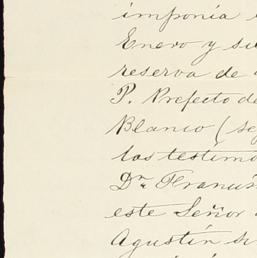 imponía
Enero y su
reserva de
P. Prefecto de
Blanco (se
los testimo
Dn. Francis
este Señor
Agustín su